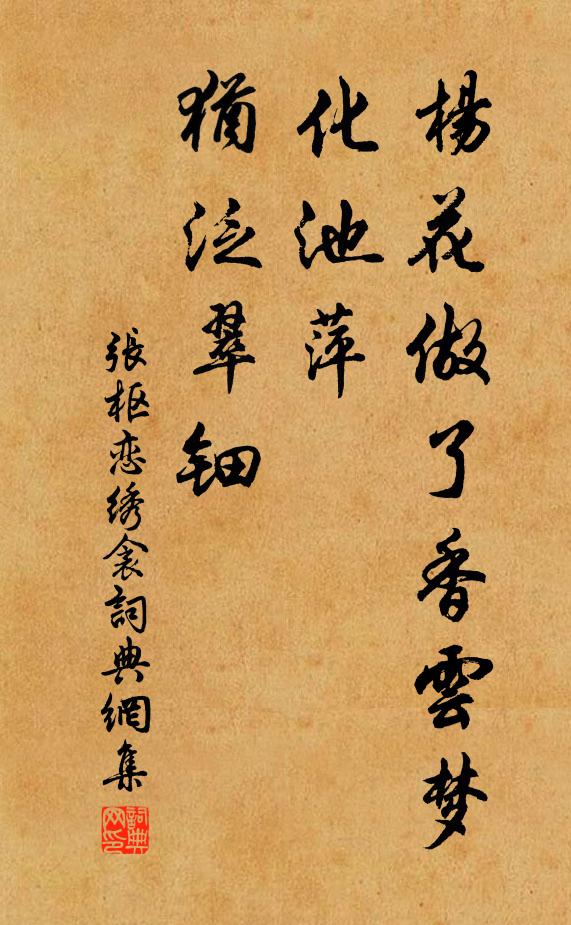 楊花做了香雲梦
化池萍
猶泛翠钿
張枢恋绣衾詞典網集
詞典网印